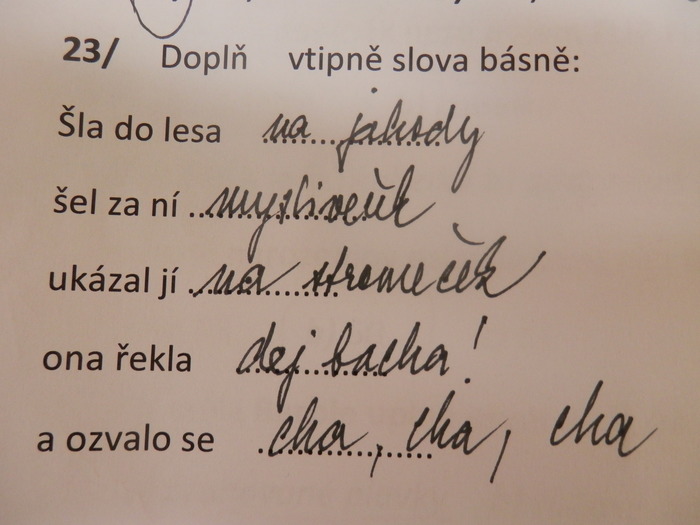 23/ Doplň vtipně slova básně:
Šla do lesa na jahody
šel za ní mysliveček
ukázal jí na stromeček
ona řekla dej bacha!
a ozvalo se cha, cha, cha